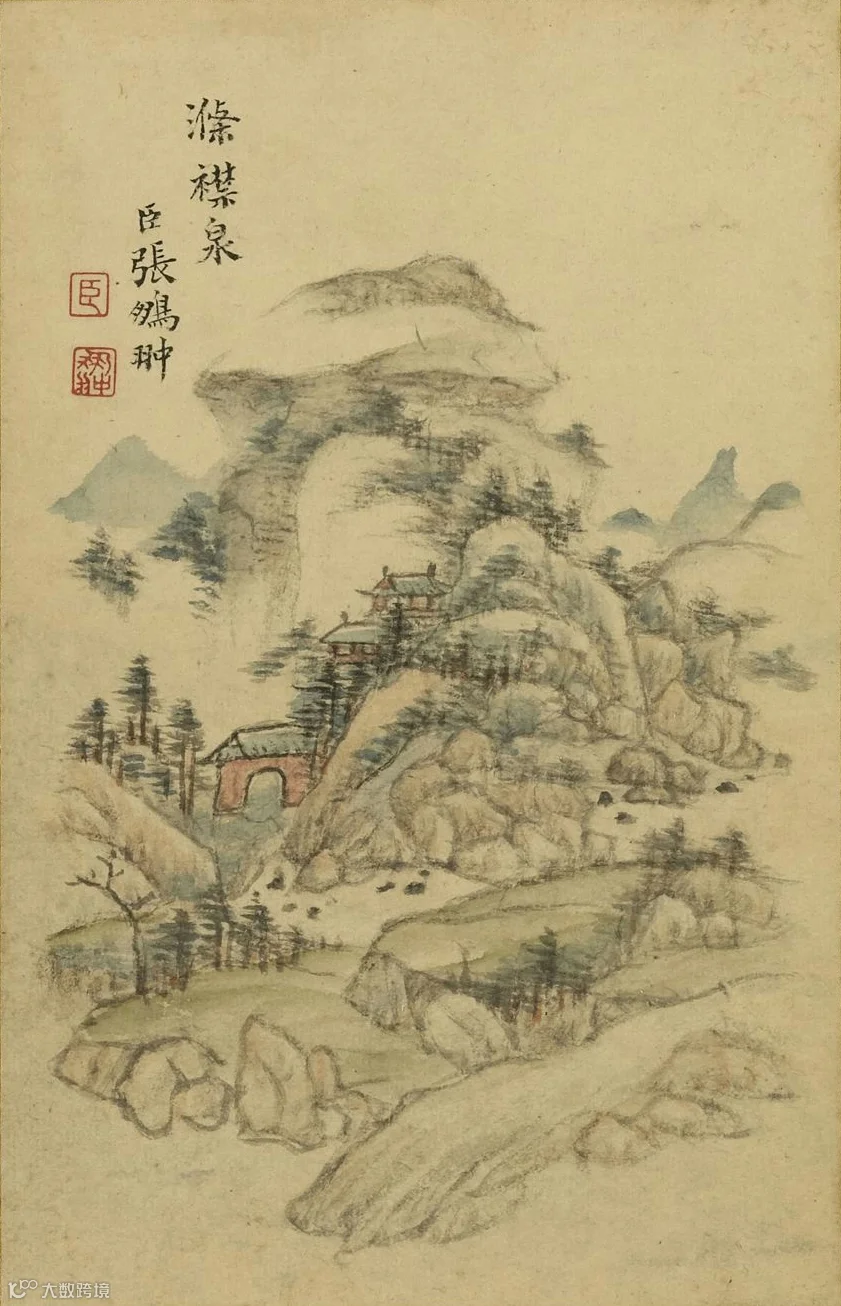 滌襟泉
臣張鵬翀
臣
鵬翀
大数跨境